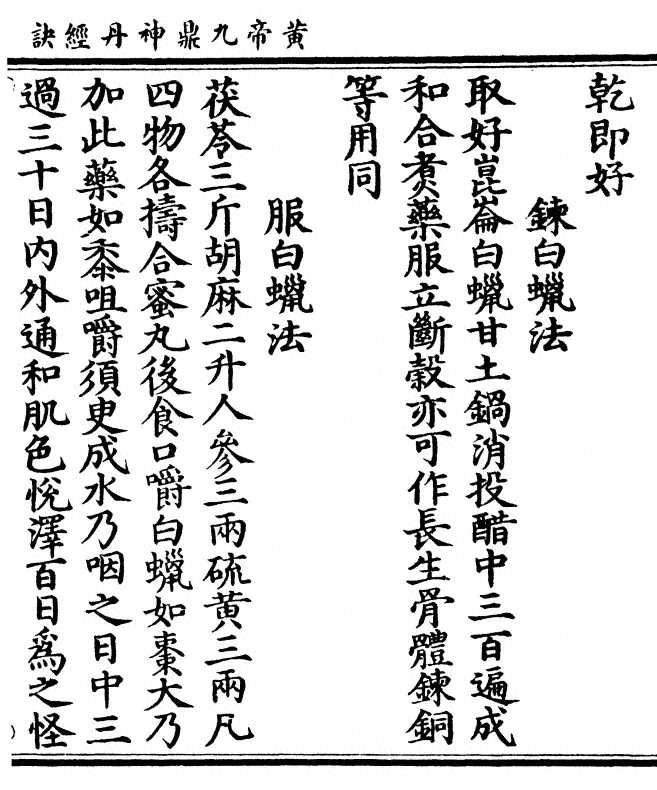 黃帝九鼎神丹經訣
乾即好
鍊白蠟法
取好崑崙白蠟甘土鍋消投醋中三百遍成
和合煮藥服立斷穀亦可作長生骨體鍊銅
等用同
服白蠟法
茯苓三斤胡麻二升人參三兩硫黃三兩凡
四物各擣合蜜丸後食口嚼白蠟如棗大乃
加此藥如黍咀嚼須臾成水乃咽之日中三
過三十日內外通和肌色悅澤百日為之怪